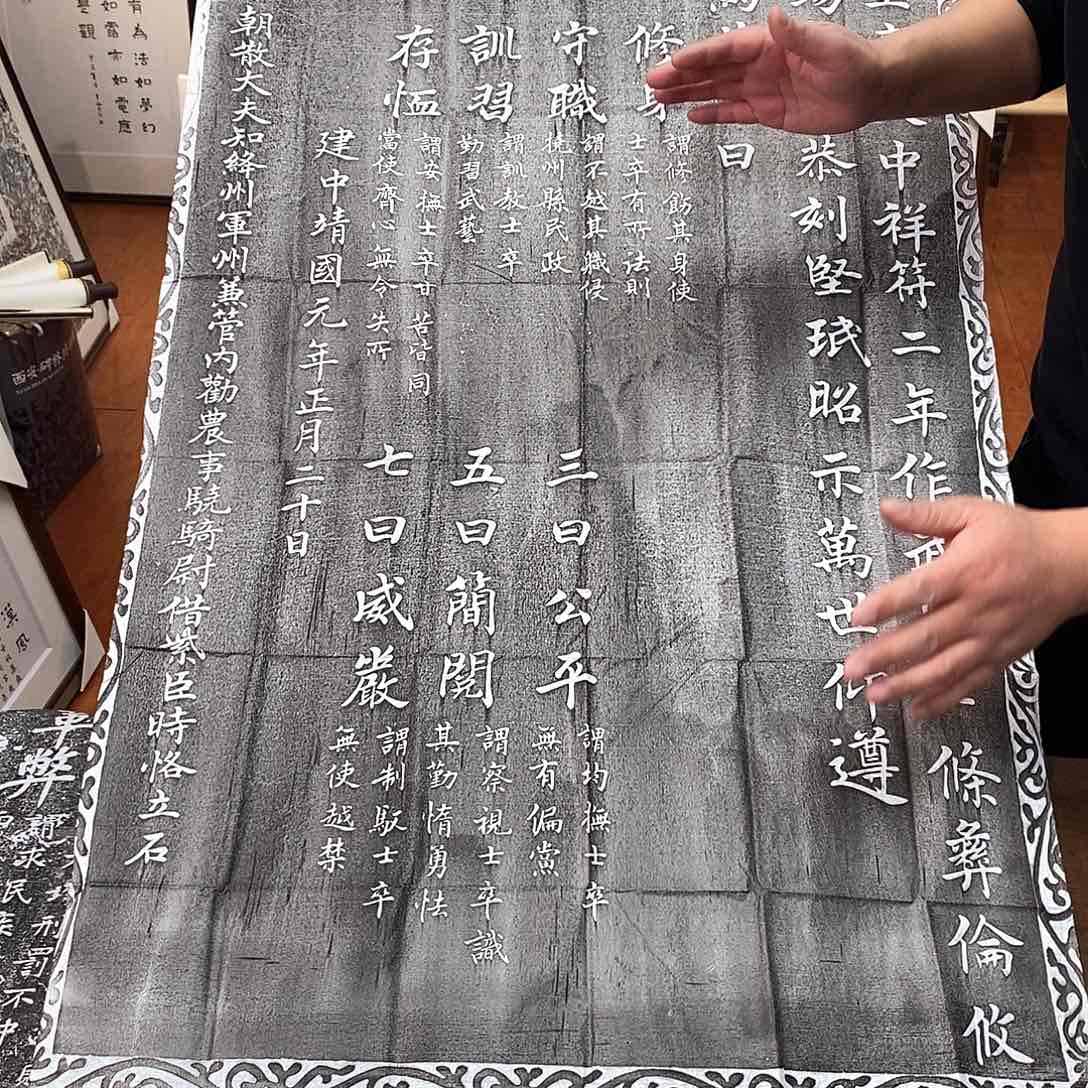 中祥符二年作
條彝倫攸
恭刻堅珉昭示萬世仰遵
曰
修身
謂修飭其身使
士卒有所法則
守職
謂不越其職侵
撓州縣民政
三曰公平
謂均撫士卒
無有偏黨
訓習
謂訓教士卒
勤習武藝
五曰簡閱
謂察視士卒識
其勤惰勇怯
存恤
謂安撫士卒甘苦皆同
當使齊心無令失所
七曰威嚴
謂制馭士卒
無使越禁
建中靖國元年正月二十日
朝散大夫知絳州軍州兼管內勸農事驍騎尉借紫臣時恪立石
有為法如夢幻
如露亦如電應
是觀
西安碑林
漢風
弊
謂求民疾
刑罰不中